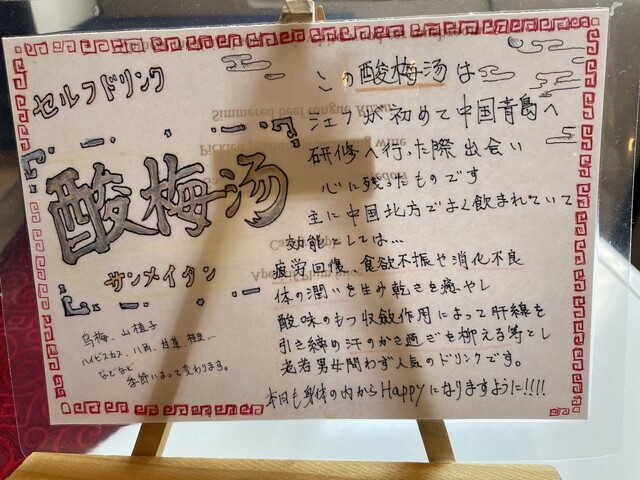 セルフドリンク
酸梅汤
サンメイタン
烏梅、山楂子
ハイビスカス、八角、甘草、桂皮...
などなど
季節によって変わります。
この酸梅汤は
江フが初めて中国青島へ
研修へ行った際出会い
心に残ったものです
主に中国北方でよく飲まれていて
効能としては...
疲労回復、食欲不振や消化不良
体の潤いを生み乾きを癒やし
酸味のもつ収斂作用によって肝線を
引き締め汗のかき過ぎを抑える等とし
老若男女問わず人気のドリンクです。
本日も身体の内からHappyになりますように!!!!
Simmered beef tongue